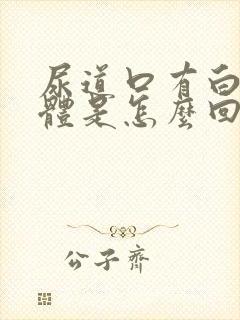 尿道口有白
體是怎麼回
公子齊